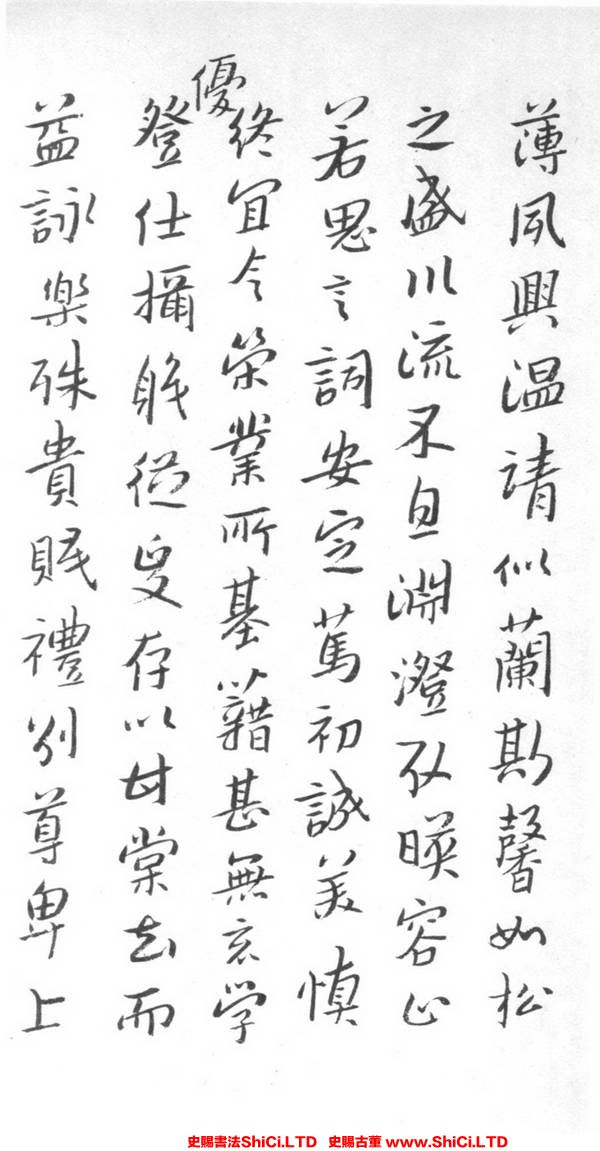 薄夙興温清似蘭斯馨如松
之盛川流不息淵澄取暎容止
若思言詞安定篤初誠美慎
終宜令榮業所基藉甚無竟学
優
登仕攝職從政存以甘棠去而
益詠樂殊貴賤禮別尊卑上
史賜書法ShiCi.LTD 史賜古董 www.ShiCi.LTD